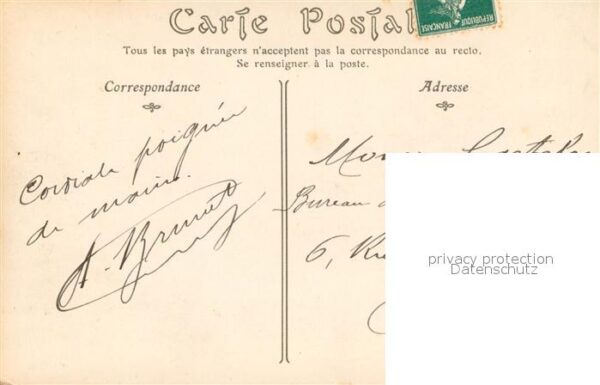 Carte Postale
RÉPUBLIQUE FRANÇAISE
Tous les pays étrangers n'acceptent pas la correspondance au recto.
Se renseigner à la poste.
Correspondance
Cordiale poignée
de main.
A. Brunet
Adresse
Bureau
6, Rue
privacy protection
Datenschutz